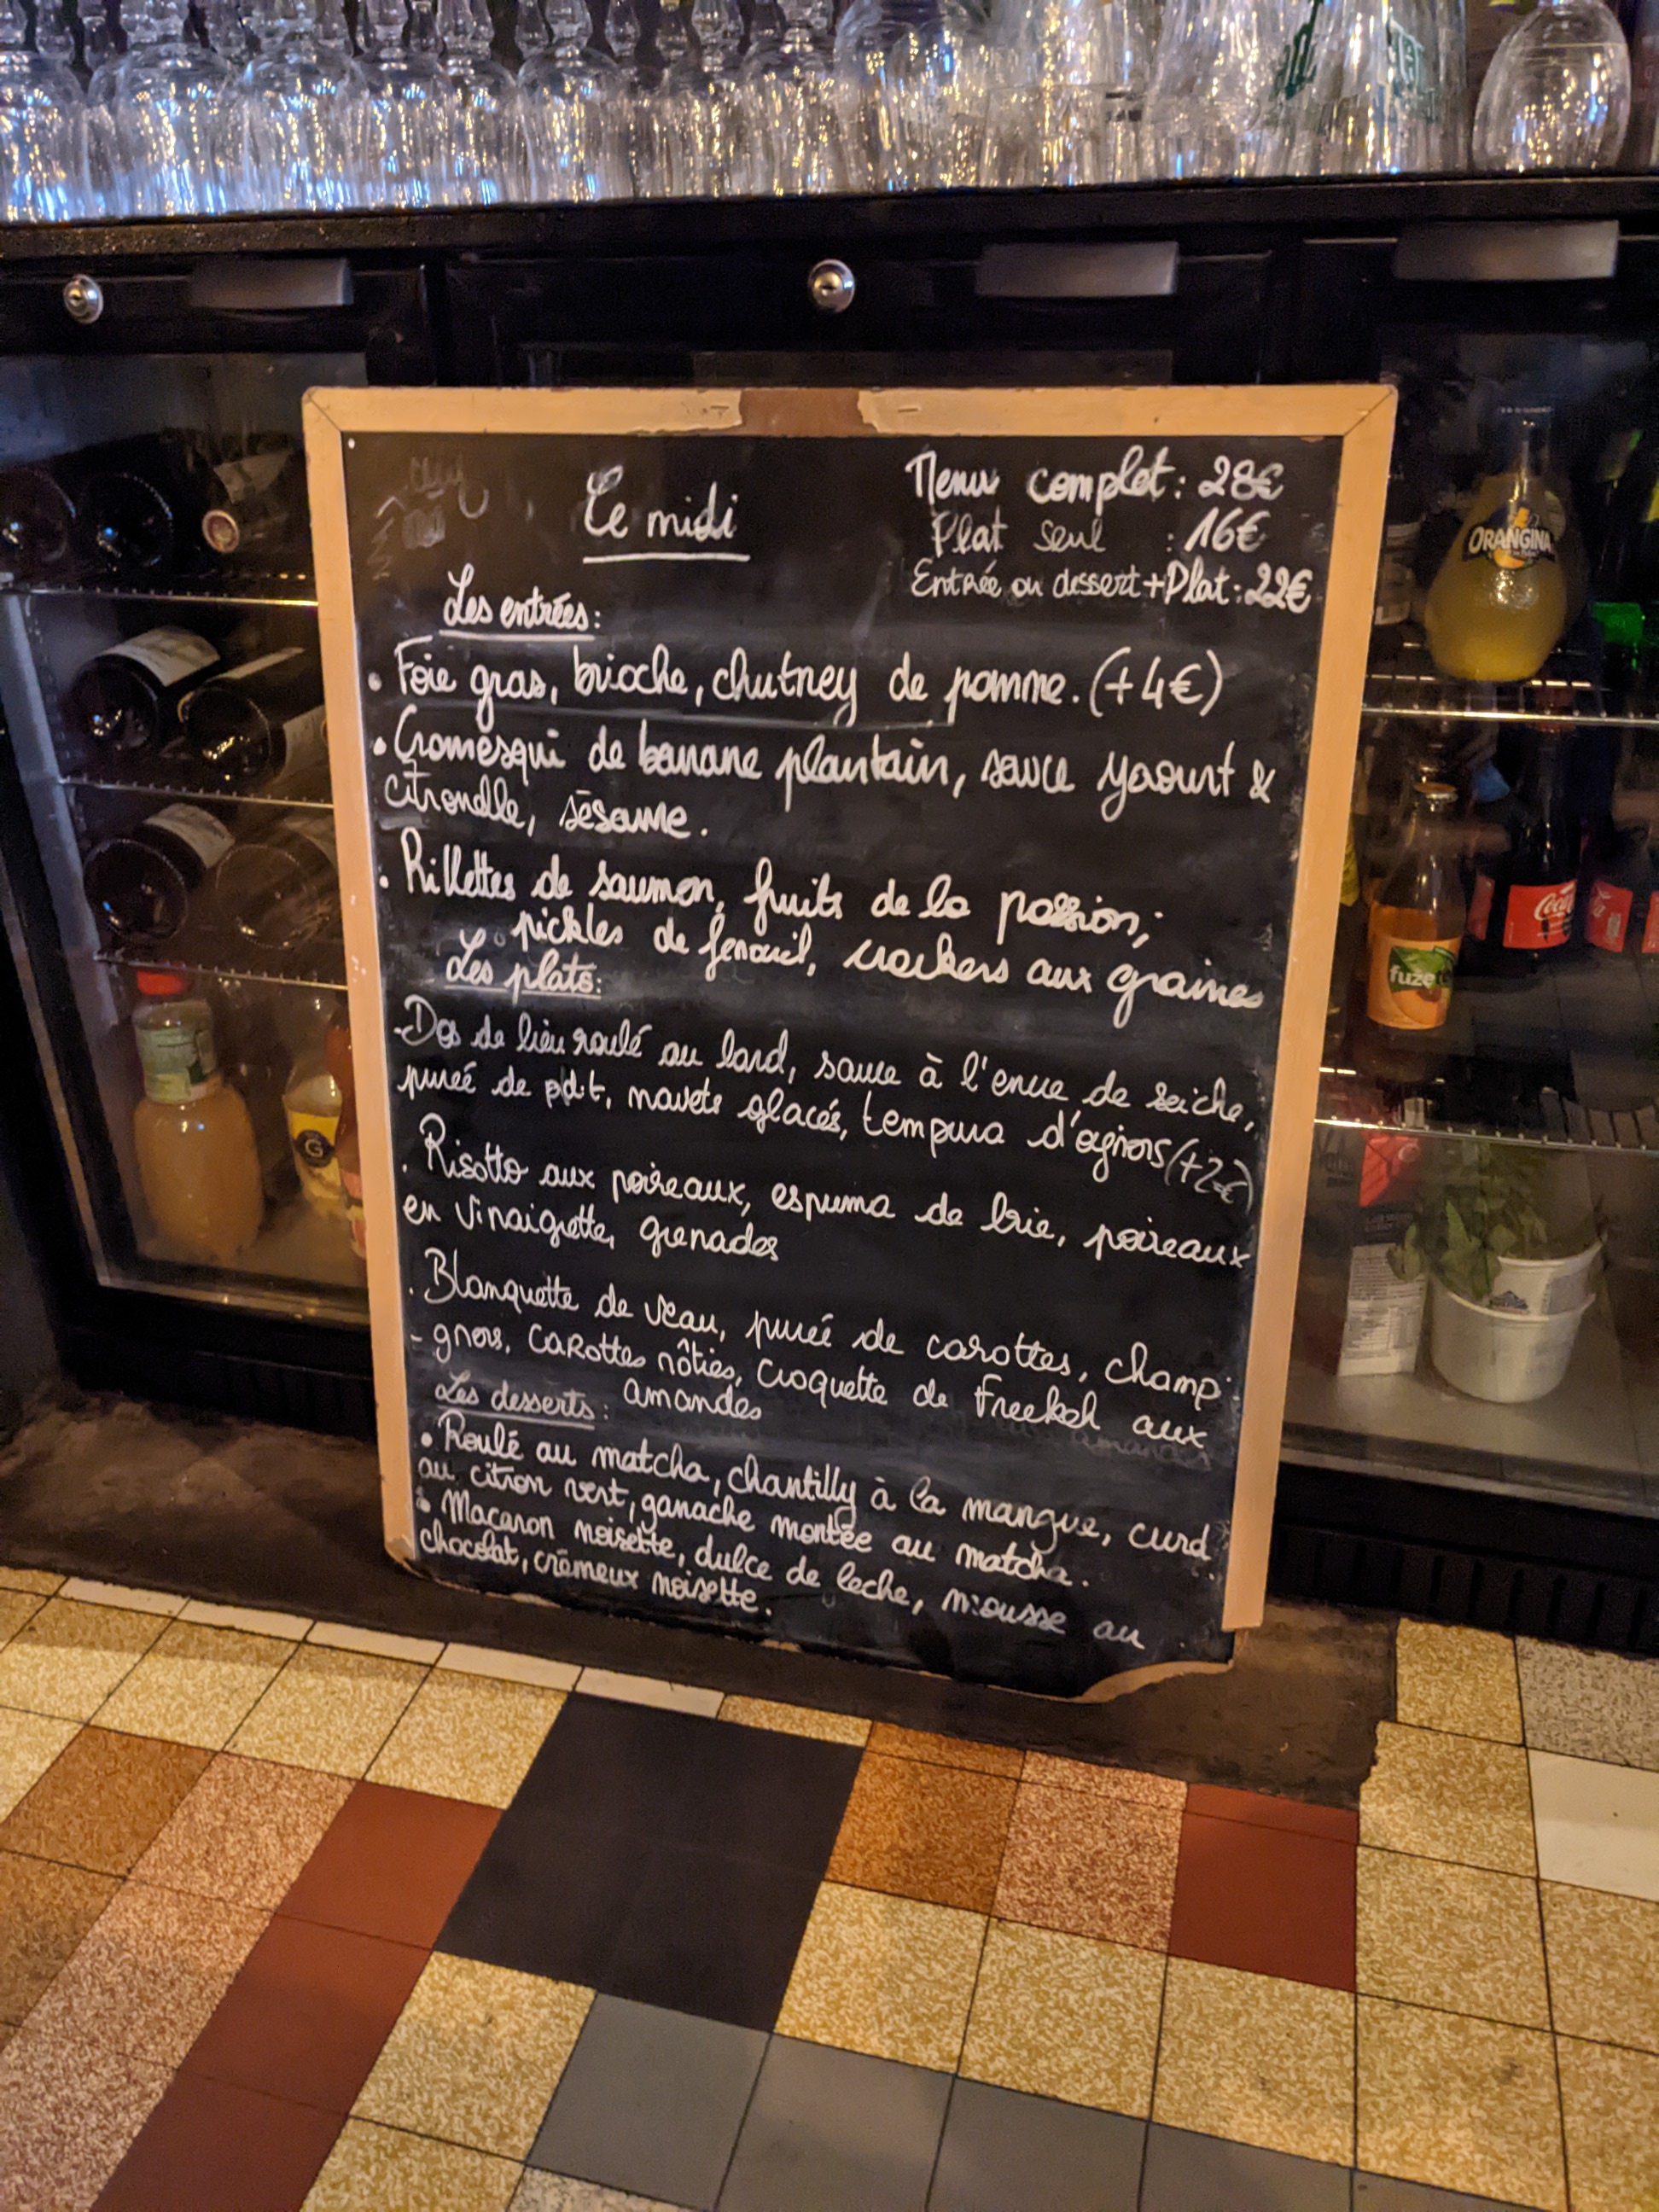 Le midi
Menu complet: 28€
Plat seul : 16€
Entrée ou dessert+Plat: 22€
Les entrées:
• Foie gras, brioche, chutney de pomme. (+4€)
• Cromesqui de banane plantain, sauce yaourt &
citronelle, sésame.
• Rillettes de saumon, fruits de la passion,
pickles de fenouil, crackers aux graines
Les plats:
-Dos de lieu roulé au lard, sauce à l'encre de seiche,
pureé de pdt, navets glacés, tempura d'oignons (+2€)
. Risotto aux poireaux, espuma de brie, poireaux
en vinaigrette, grenades
. Blanquette de veau, pureé de carottes, champi-
-gnons, carottes rôties, croquette de Freekeh aux
amandes
Les desserts:
• Roulé au matcha, chantilly à la mangue, curd
au citron vert, ganache montée au matcha.
• Macaron noisette, dulce de leche, mousse au
chocolat, crémeux noisette.
ORANGINA
fuze tea
Coca
G